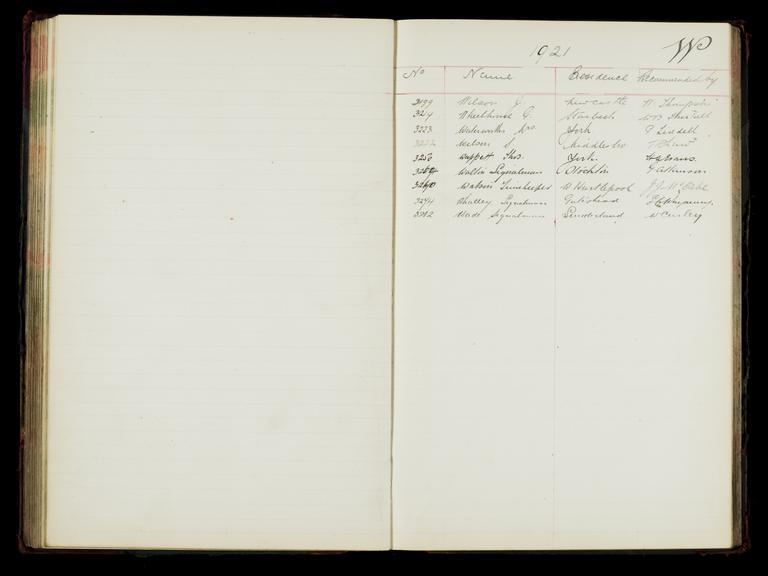 1921 W
No Name Residence Recommended by
3199 Wilson J. Newcastle W Thompson
3214 Wheelhouse G. Starbeck W B Thirtall
3223 Waterworths Mrs. York P Liddell
3232 Watson S Middlesbro T Shaw
3256 Wappett Thos. York
Walton Signalman Stockton G Atkinson
Watson Timekeeper W Hartlepool J J McCabe
3294 Whalley Signalman Gateshead
3312 Wade Signalman Sunderland W Curley